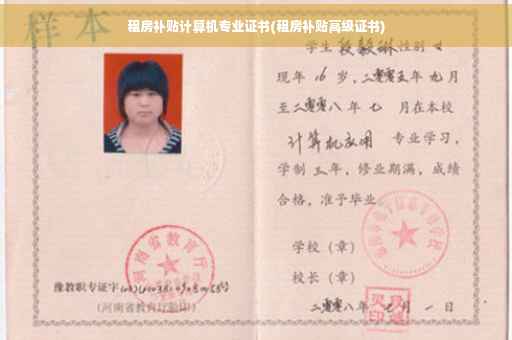 租房补贴计算机专业证书(租房补贴高级证书)
样本
学生 段毅琳 性别 女
现年 16 岁，二零零五年 九 月
至二零零八年 七 月在本校
计算机应用 专业学习，
学制 三 年，修业期满，成绩
合格，准予毕业。
学校（章）
校长（章）
二零零八年 七 月 一 日
河南省教育厅
豫教职专证字
（河南省教育厅验印）